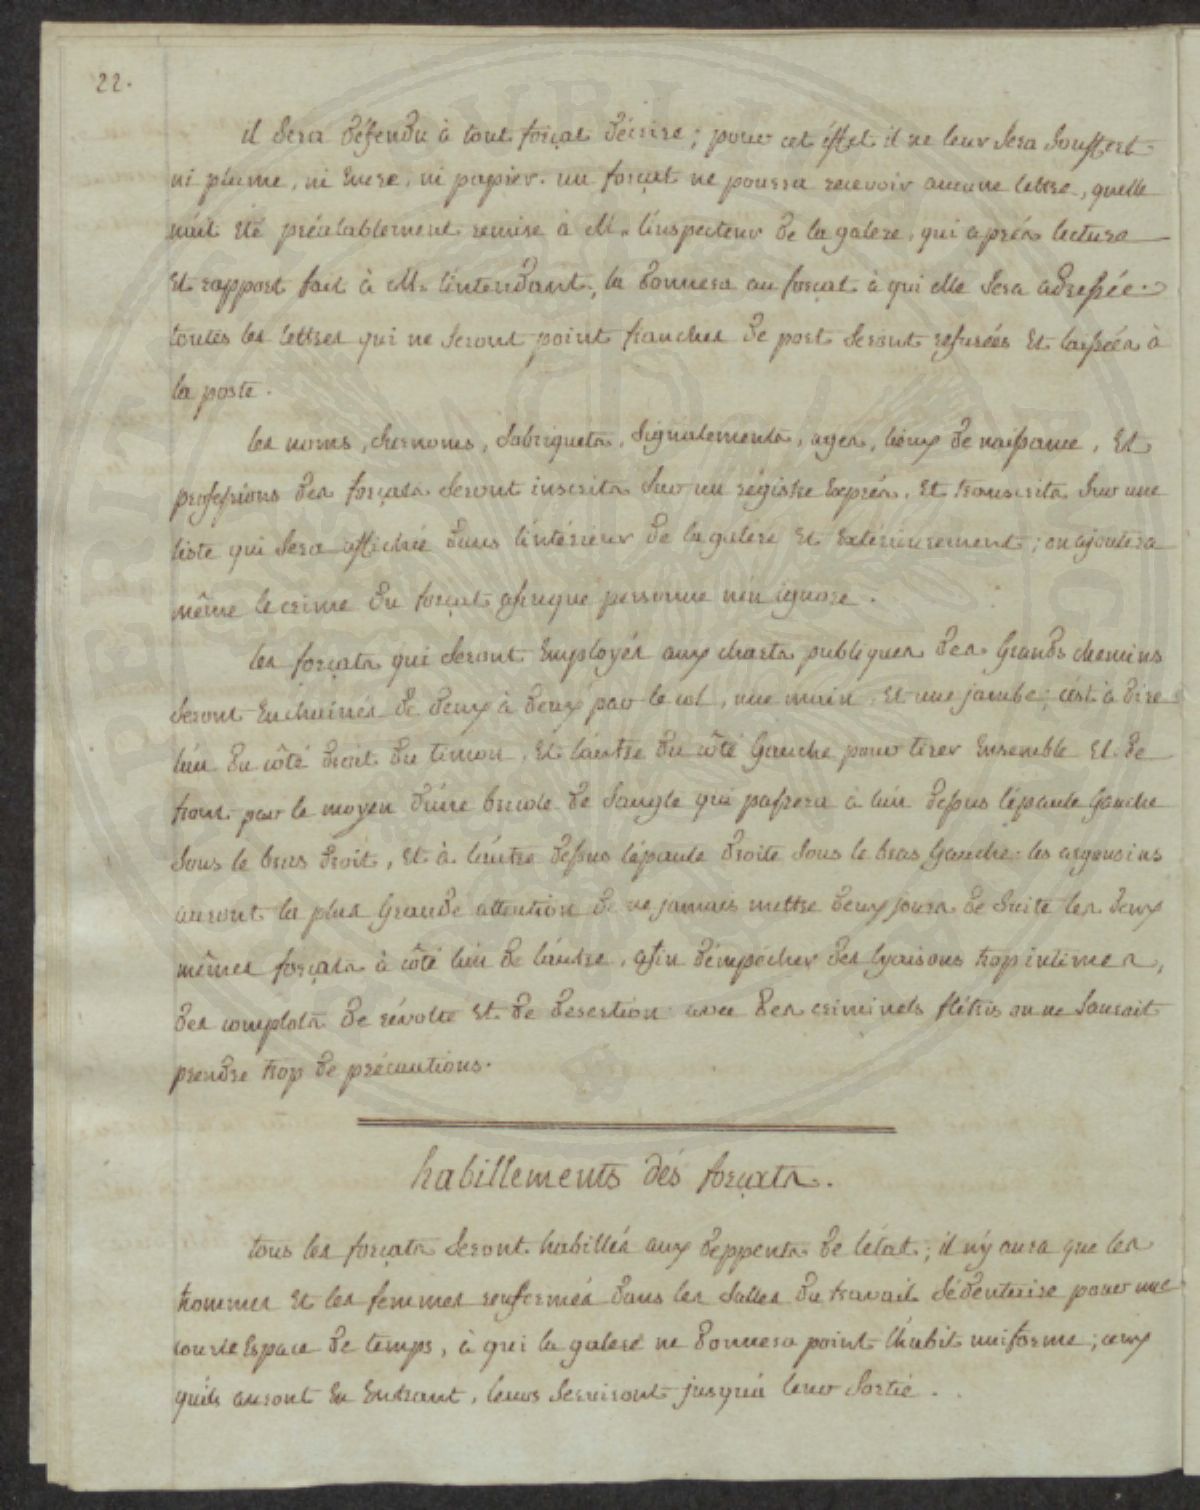 22.
il sera défendu à tout forçat décrire; pour cet éffet il ne leur sera souffert
ni plume, ni encre, ni papier. un forçat ne pourra recevoir aucune lettre, quelle
n'ait été préalablement remise à M. l'inspecteur de la galere, qui après lecture
et rapport fait à M. l'intendant, la donnera au forçat à qui elle sera adressée.
toutes les lettres qui ne seront point franches de port seront refusées et laissées à
la poste.
les noms, surnoms, sabriquets, signalements, ages, lieux de naissance, et
professions des forçats seront inscrits sur un régistre exprès, et transcrits sur une
liste qui sera affichée dans l'intérieur de la galere et extérieurement; on ajoutera
même le crime du forçat afin que personne n'en ignore.
les forçats qui seront employés aux charts publiques des grands chemins
seront enchainés de deux à deux par le col, une main, et une jambe; c'est à dire
l'un du côté droit du timon, et l'autre du côté gauche pour tirer ensemble et de
front par le moyen d'une bricole de sangle qui passera à l'un dessus l'épaule gauche
sous le bras droit, et à l'autre dessus l'épaule droite sous le bras gauche. les argousins
auront la plus grande attention de ne jamais mettre deux jours de suite les deux
mêmes forçats à côté l'un de l'autre, afin d'empécher des lyaisons trop intimes,
des complots de révolte et de desertion: avec des criminels flétris on ne sauroit
prendre trop de précautions.
habillements dés forçats.
tous les forçats seront habillés aux deppents de l'état; il n'y aura que les
hommes et les femmes renfermés dans les salles du travail sédenterire pour une
courte espace de temps, à qui la galere ne donnera point l'habit uniforme; ceux
qu'ils auront en entrant, leurs serviront jusqu'à leur sortie.